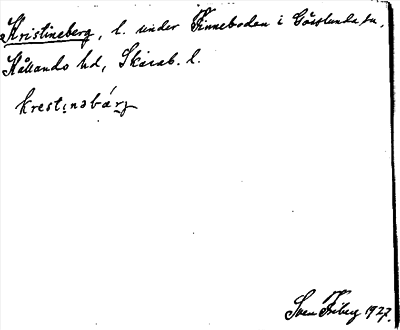 Kristineberg, l. under Finnebodan i Gösslunda sn,
Kållands hd, Skarab. l.
krestinəbárj
Sven Friberg 1927.